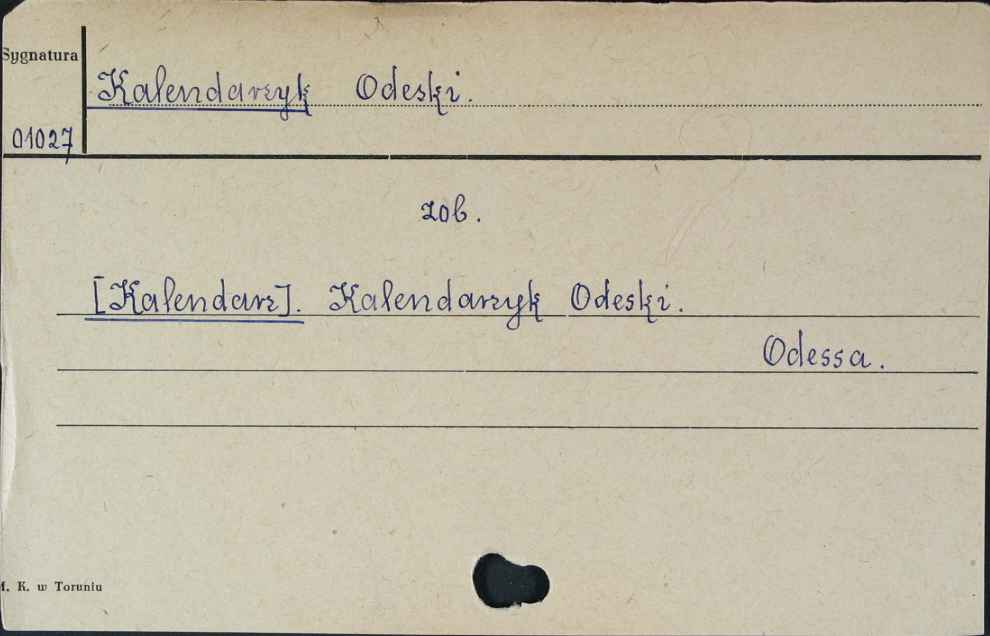 Sygnatura
Kalendarzyk Odeski.
01027
zob.
[Kalendarz]. Kalendarzyk Odeski.
Odessa.
M. K. w Toruniu